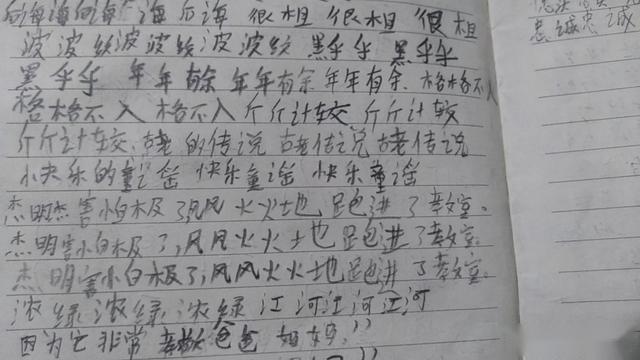 很粗 很粗 很粗
波波纹波波纹波波纹 黑乎乎 黑乎乎
黑乎乎 年年有余 年年有余 年年有余. 格格不入
格格不入 格格不入 斤斤计较 斤斤计较
斤斤计较. 的传说 古老传说 古老传说
快乐的童谣 快乐童谣 快乐童谣
杰明 害怕极了,风风火火地跑进了教室.
杰明害怕极了,风风火火地跑进了教室.
杰明害怕极了,风风火火地跑进了教室.
浓绿 浓绿 浓绿 江河江河江河
因为它非常 爸爸
忠诚忠诚